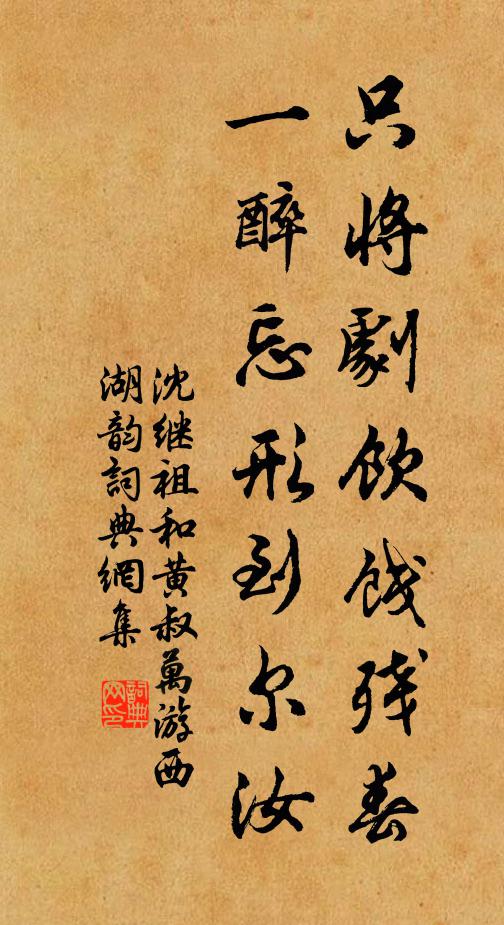 只將劇飲餞殘春
一醉忘形到尔汝
沈继祖和黄叔萬游西
湖韵詞典網集
詞典
网印